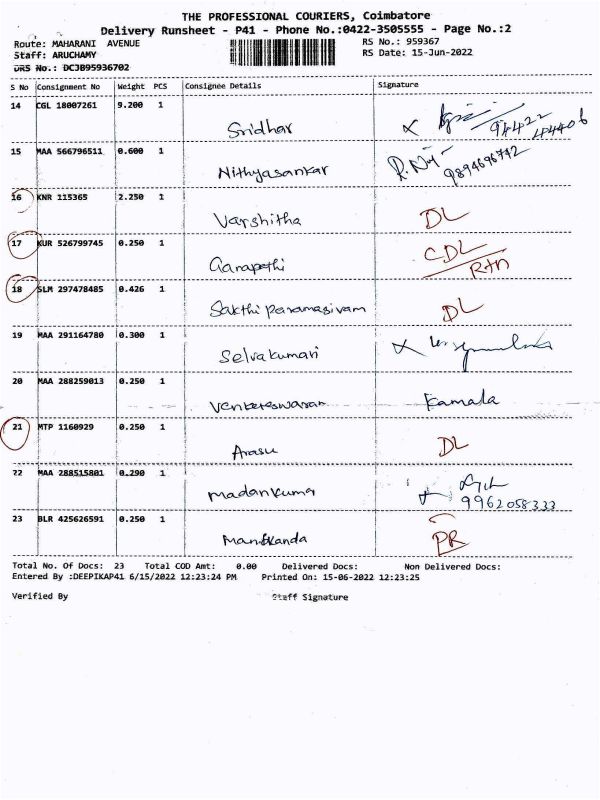 THE PROFESSIONAL COURIERS, Coimbatore
Delivery Runsheet - P41 - Phone No.:0422-3505555 - Page No.:2
Route: MAHARANI AVENUE RS No.: 959367
Staff: ARUCHAMY RS Date: 15-Jun-2022
DRS No.: DCJB95936702
S No Consignment No Weight PCS Consignee Details Signature
14 CGL 18007261 9.200 1
Sridhar 94422 44406
15 MAA 566796511 0.600 1
Nithyasankar 9894696742
16 KNR 115365 2.250 1
Varshitha DL
17 KUR 526799745 0.250 1
Ganapathi CDL
Rtn
18 SLM 297478485 0.426 1
Sakthi Paramasivam DL
19 MAA 291164780 0.300 1
Selvakumari
20 MAA 288259013 0.250 1
Venkateswaran Kamala
21 MTP 1160929 0.250 1
Arasu DL
22 MAA 288515801 0.290 1
Madankumar 9962058333
23 BLR 425626591 0.250 1
Manikanda PR
Total No. Of Docs: 23 Total COD Amt: 0.00 Delivered Docs: Non Delivered Docs:
Entered By :DEEPIKAP41 6/15/2022 12:23:24 PM Printed On: 15-06-2022 12:23:25
Verified By Staff Signature